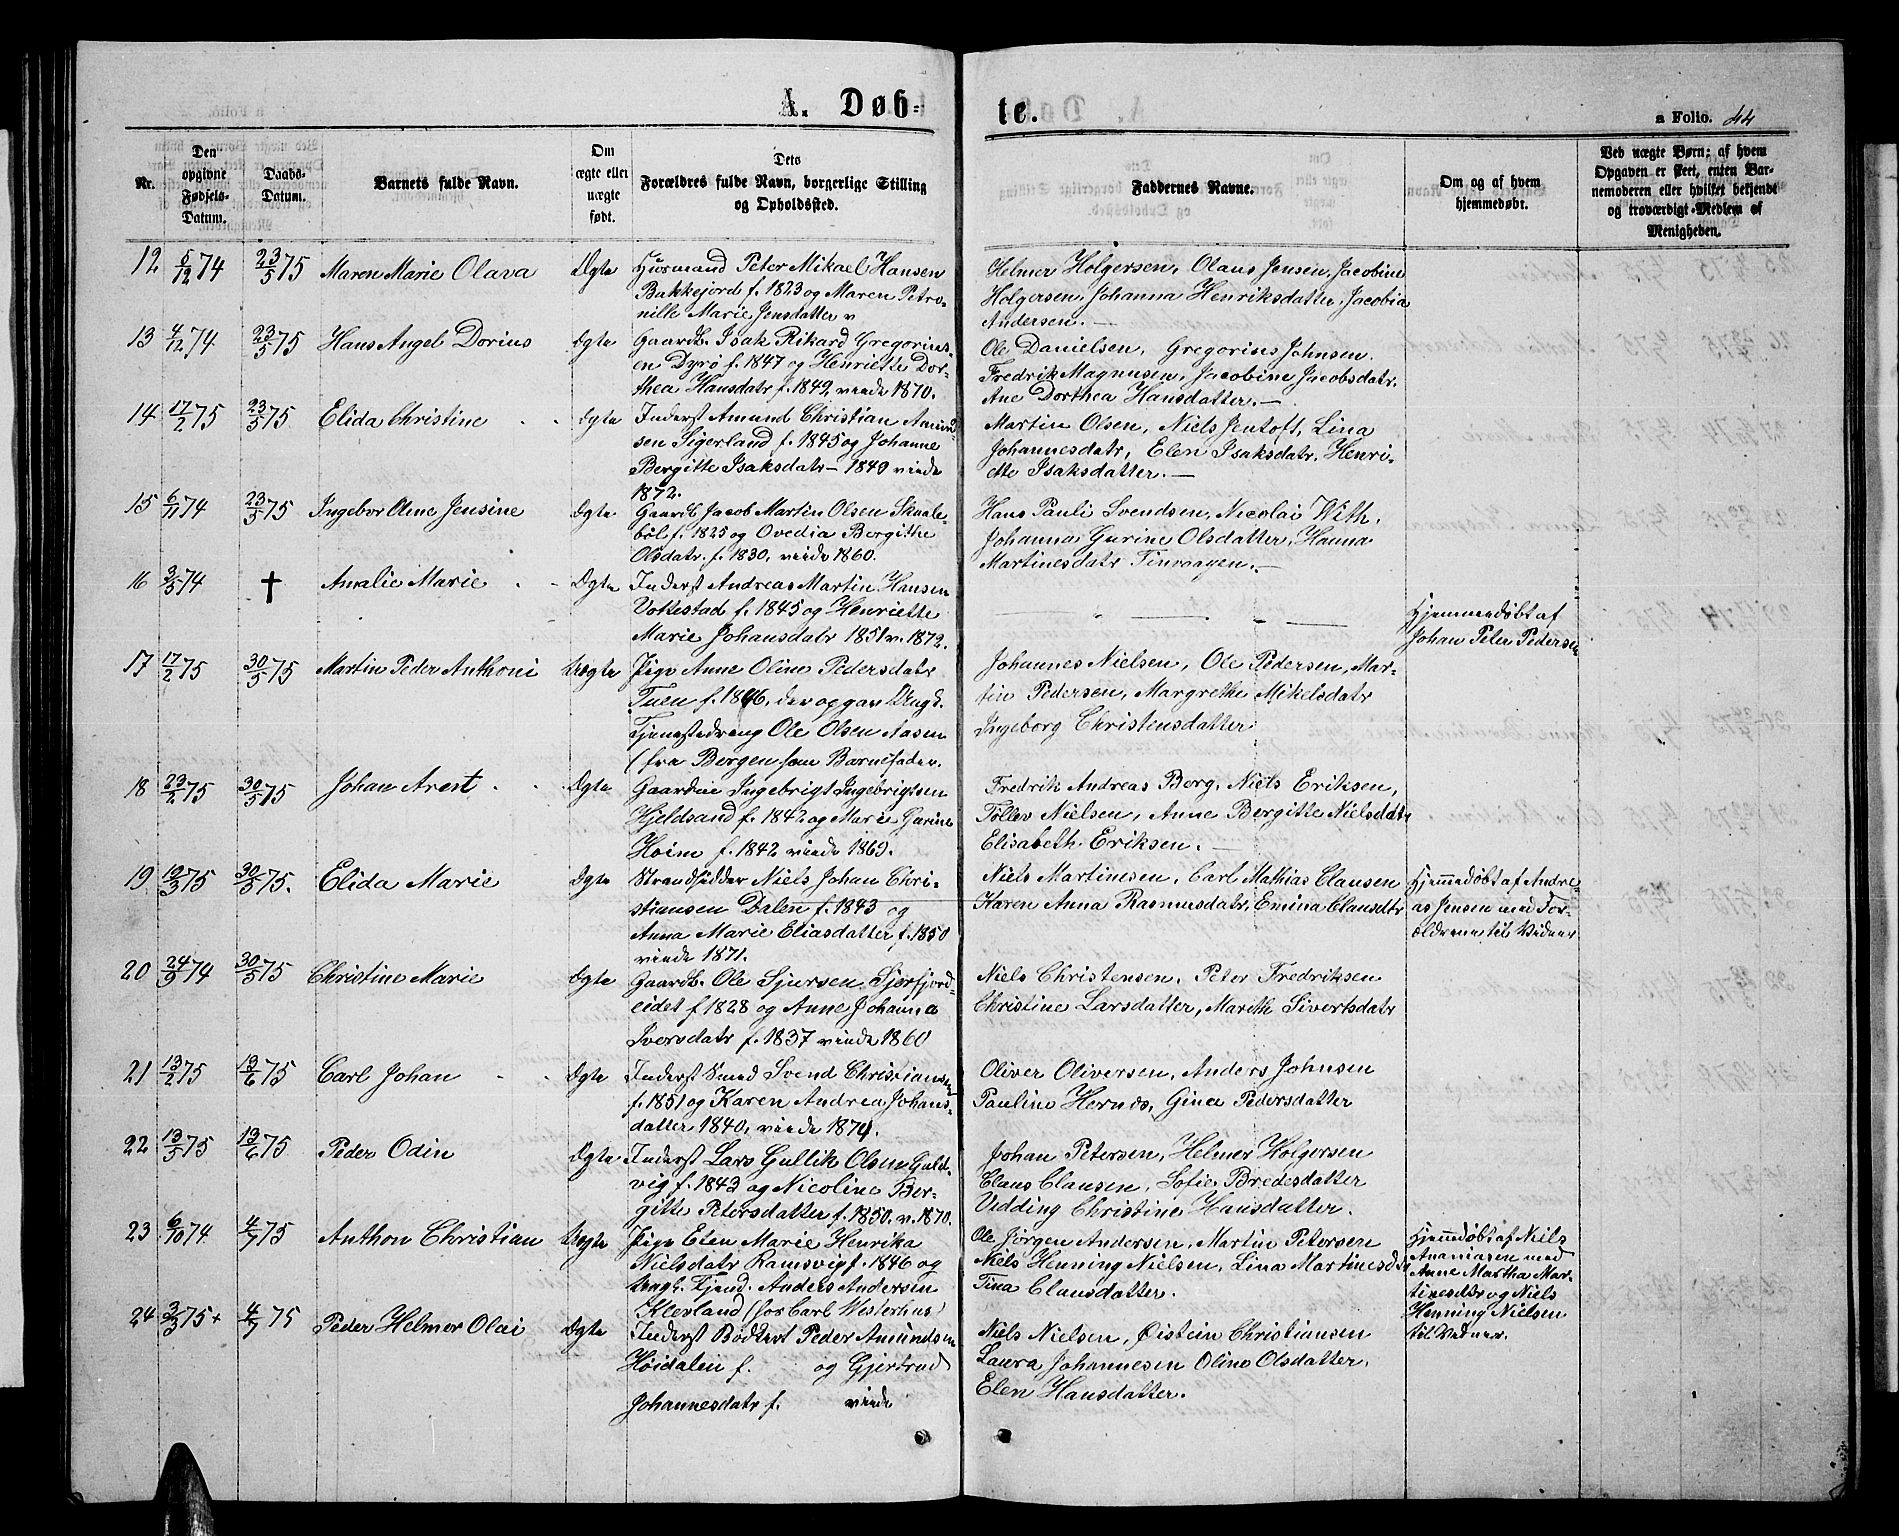 A. Døb-
te.
a Folio. 44
Nr.
Den opgivne Fødsels-Datum.
Daabs-Datum.
Barnets fulde Navn.
Om ægte eller uægte født.
Dets Forældres fulde Navn, borgerlige Stilling og Opholdssted.
Faddernes Navne.
Om og af hvem hjemmedøbt.
Ved uægte Børn; af hvem Opgaven er skeet, enten Barnemoderen eller hvilket bekjendt og troværdigt Medlem af Menigheden.
12 8/12 74 23/5 75 Maren Marie Olava Ægte
Husmand Peter Mikael Hansen
Bakkejord f. 1823 og Maren Petro-
nille Marie Jensdatter v
Helmer Holgersen, Olaus Jensen, Jacobine
Holgersen, Johanna Henriksdatter, Jacobia
Andersen.—
13 4/12 74 23/5 75 Hans Angel Dorius Ægte
Gaardb. Isak Rikard Gregorius-
en Dyrø f. 1847 og Henriette Dor-
thea Hansdatr f. 1842, viede 1870.
Ole Danielsen, Gregorius Johnsen,
Fredrik Magnusen, Jacobine Jacobsdatr,
Ane Dorthea Hansdatter.—
14 17/2 75 23/5 75 Elida Christine Ægte
Inderst Amund Christian Amund-
sen Sigerland f. 1845 og Johanne
Bergitte Isaksdatr — 1849 viede
1872.
Martin Olsen, Niels Jentoft, Lina
Johannesdatr, Elen Isaksdatr, Henri-
ette Isaksdatter.—
15 6/11 74 23/5 75 Ingebor Oline Jensine Ægte
Gaardb. Jacob Martin Olsen Skaale-
böl f. 1825 og Ovedia Bergithe
Olsdatr. f. 1830, viede 1860.
Hans Pauli Svendsen, Nicolai With,
Johanna Gurine Olsdatter, Hanna
Martinesdatr Finvaagen.—
16 3/5 74 † Amalie Marie Ægte
Inderst Andreas Martin Hansen
Vottestad f. 1845 og Henriette
Marie Johansdatr 1851 v. 1872.
Hjemmedøbt af
Johan Peter Pedersen
17 17/2 75 30/5 75 Martin Peder Anthoni Uægte
Pige Anne Oline Pedersdatr
Tuen f. 1846, der opgav Ungk.
Tjenestedreng Ole Olsen Aasen
(fra Bergen som Barnefader.
Johannes Nielsen, Ole Pedersen, Mar-
tin Pedersen, Margrethe Mikelsdatr
Ingeborg Christensdatter
18 23/2 75 30/5 75 Johan Arent Ægte
Gaardeie Ingebrigt Ingebrigtsen
Hjeldsand f. 1842 og Marie Gurine
Hoim f. 1842 viede 1869.
Fredrik Andreas Borg, Niels Eriksen,
Tollev Nielsen, Anne Bergitte Nielsdatr
Elisabeth Eriksen.—
19 19/3 75 30/5 75. Elida Marie Ægte
Strandsidder Niels Johan Chri-
stiansen Dalen f. 1843 og
Anna Marie Eliasdatter f. 1850
viede 1871.
Niels Martinesen, Carl Mathias Clausen
Karen Anna Rasmusdatr, Emina Clausdtr
Hjemmedøbt af Andre-
as Jensen med For-
ældrene til Vidner
20 24/9 74 30/5 75 Christine Marie Ægte
Gaardb. Ole Sjursen, Sjørfjord-
eidet f 1828 og Anne Johanna
Iversdatr f. 1837 viede 1860
Niels Christensen, Peter Fredriksen
Christine Larsdatter, Marith Sivertsdatr
21 13/2 75 13/6 75 Carl Johan Ægte
Inderst Smed Svend Christiansen
f. 1851 og Karen Andrea Johans-
datter 1840, viede 1874.
Oliver Oliversen, Anders Johnsen
Pauline Hernæs, Gina Pedersdatter
22 13/5 75 13/6 75 Peder Odin Ægte
Inderst Lars Gullik Olsen Guld-
vig f. 1843 og Nicoline Ber-
gitte Petersdatter f. 1850. v. 1870.
Johan Petersen, Helmer Holgersen
Claus Clausen, Sofie Bredesdatter
Vedding Christine Hansdatter.
23 6/10 74 4/7 75 Anthon Christian Uægte
Pige Elen Marie Henrika
Nielsdatr Ramsvig f. 1846 og
Ungk. Tjend. Anders Andersen
(for Carl Westerhus)
Ole Jørgen Andersen, Martin Petersen
Niels Henning Nielsen, Lina Martinesdtr
Tina Clausdatter.
Hjemmedøbt af Niels
Ananiasen med
Anne Martha Mar-
tinesdtr og Niels
Henning Nielsen
til Vidner.
24 3/3 75 + 4/7 75 Peder Helmer Olai Ægte
Inderst Bødkert Peder Amundsen
Høidalen f. og Gjertrud
Johannesdatr f. viede
Niels Nielsen, Øistein Christiansen
Laura Johannesen Oline Olsdatter,
Elen Hansdatter.